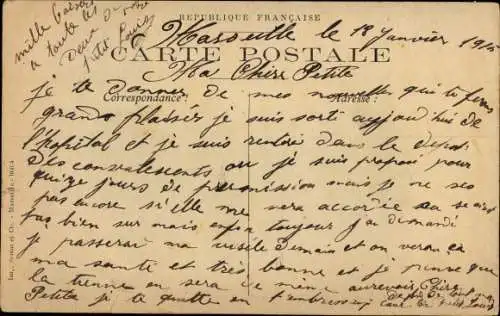 mille baisers
a toute les
Deux
petit Louis
RÉPUBLIQUE FRANÇAISE
Marseille le 18 Janvier 191
CARTE POSTALE
Ma Chère Petite
je te donner de mes nouvelle qui te feras
Correspondance: Adresse:
grand plaisir je suis sorti aujourd'hui de
l'hopital et je suis rentré dans le depot
des convalescents ou je suis proposé pour
quize jours de permission mais je ne ses
pas encore si elle me sera accordée sa se
pas bien sur mais enfin toujour j'ai demandé
je passerai na visite demais et on verra ca
ma sante et très bonne et je pense que
la tienne en sera de même aurevoir Chère
Petite je te quitte en t'embrassent
de tout